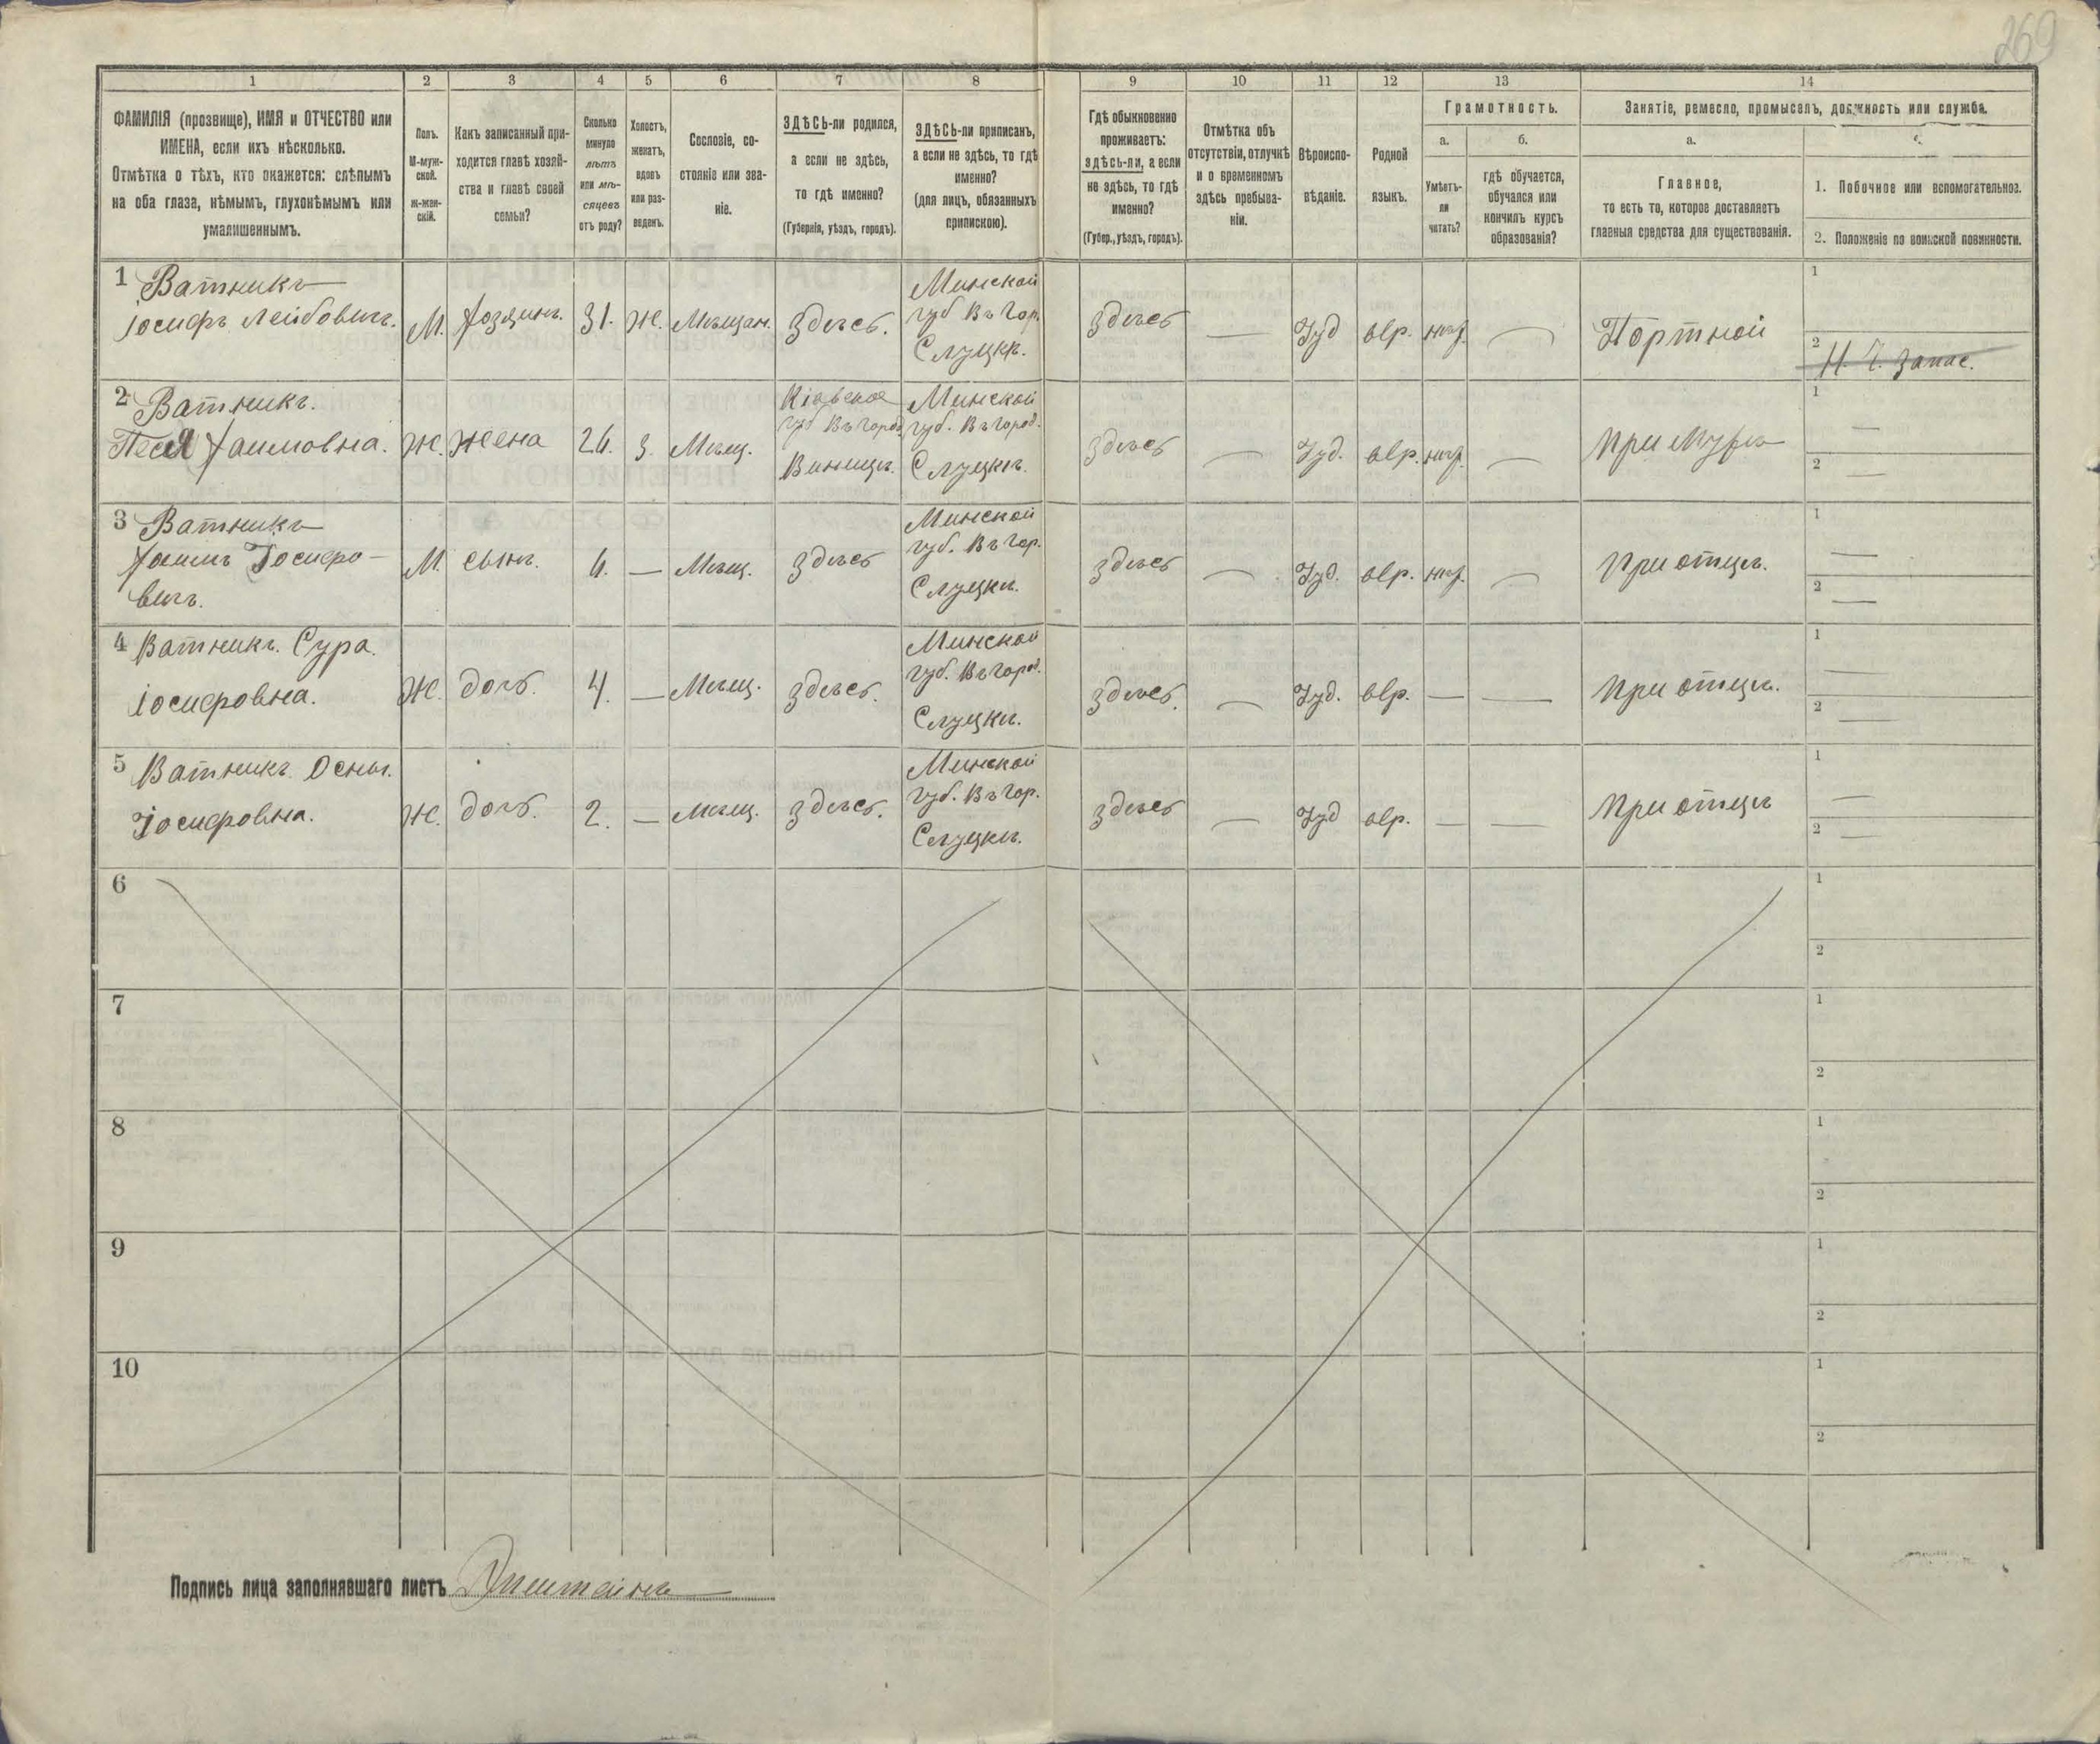 269
1 2 3 4 5 6 7 8 9 10 11 12 13 14
ФАМИЛІЯ (прозвище), ИМЯ и ОТЧЕСТВО или
ИМЕНА, если ихъ нѣсколько.
Отмѣтка о тѣхъ, кто окажется: слѣпымъ
на оба глаза, нѣмымъ, глухонѣмымъ или
умалишеннымъ.
Полъ.
М-муж-
ской.
Ж-жен-
скій.
Какъ записанный при-
ходится главѣ хозяй-
ства и главѣ своей
семьи?
Сколько
минуло
лѣтъ
или мѣ-
сяцевъ
отъ роду?
Холостъ,
женатъ,
вдовъ
или раз-
веденъ.
Сословіе, со-
стояніе или зва-
ніе.
ЗДѢСЬ-ли родился,
а если не здѣсь,
то гдѣ именно?
(Губернія, уѣздъ, городъ).
ЗДѢСЬ-ли приписанъ,
а если не здѣсь, то гдѣ
именно?
(для лицъ, обязанныхъ
припискою).
Гдѣ обыкновенно
проживаетъ:
здѣсь-ли, а если
не здѣсь, то гдѣ
именно?
(Губер., уѣздъ, городъ).
Отмѣтка объ
отсутствіи, отлучкѣ
и о временномъ
здѣсь пребыва-
ніи.
Вѣроиспо-
вѣданіе.
Родной
языкъ.
Грамотность.
а.
Умѣетъ-
ли
читать?
б.
гдѣ обучается,
обучался или
кончилъ курсъ
образованія?
Занятіе, ремесло, промыселъ, должность или служба.
а.
Главное,
то есть то, которое доставляетъ
главныя средства для существованія.
1. Побочное или вспомогательное.
2. Положеніе по воинской повинности.
1 Ватникъ
Іосифъ Лейбовичъ.
М.
Хозяинъ.
31.
Ж.
Мѣщан.
Здѣсь.
Минской
губ Въ гор.
Слуцкѣ.
Здѣсь
—
Іуд
евр.
нигр.
—
Портной
1
2
Н. Ч. запас.
2 Ватникъ.
Песя Хаимовна.
Ж.
Жена
26.
З.
Мѣщ.
Кіевской
губ Въ город
Виницѣ.
Минской
губ. Въ город.
Слуцкѣ.
Здѣсь
—
Іуд.
евр.
нигр.
—
При Мужѣ
1 —
2 —
3 Ватникъ
Хаимъ Іосифо-
вичъ.
М.
сынъ.
6.
—
Мѣщ.
Здѣсь
Минской
губ. Въ гор.
Слуцкѣ.
Здѣсь
—
Іуд.
евр.
нигр.
—
При отцѣ.
1 —
2 —
4 Ватникъ. Сура.
Іосифовна.
Ж.
дочь.
4.
—
Мѣщ.
Здѣсь.
Минской
губ. Въ город.
Слуцкѣ.
Здѣсь.
—
Іуд.
евр.
—
—
При отцѣ.
1 —
2 —
5 Ватникъ. Осны.
Іосифовна.
Ж.
дочь.
2.
—
Мѣщ.
Здѣсь.
Минской
губ. Въ гор.
Слуцкѣ.
Здѣсь
—
Іуд
евр.
—
—
При отцѣ
1 —
2 —
6
1
2
7
1
2
8
1
2
9
1
2
10
1
2
Подпись лица заполнявшаго листъ